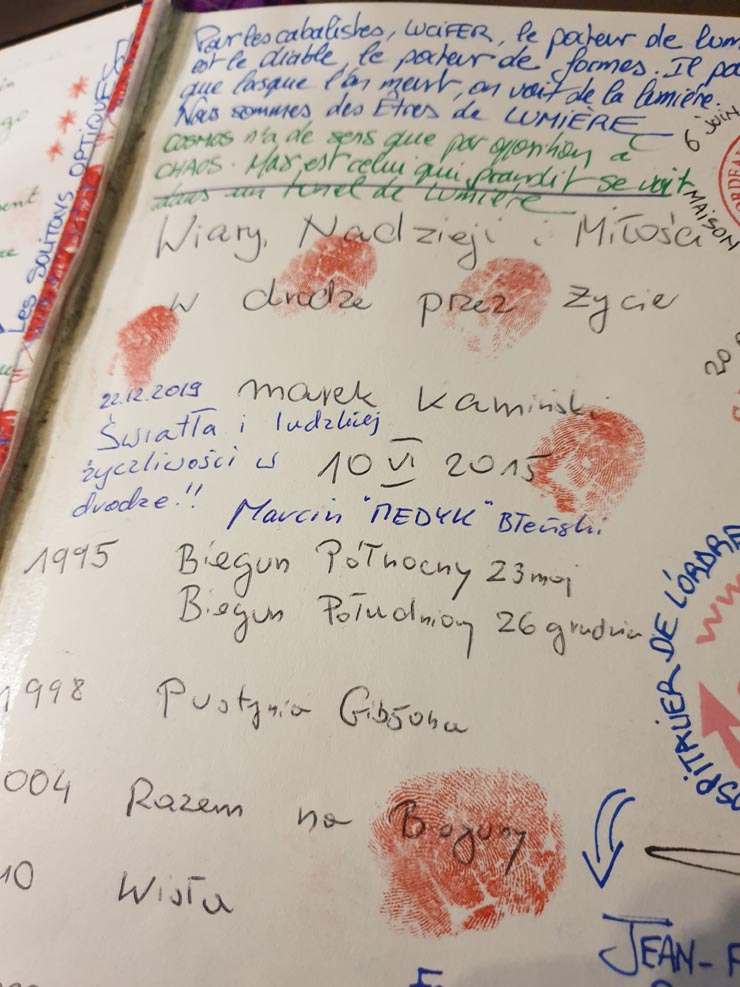 Pour les cabalistes, LUCIFER, le porteur de lum
est le diable, le porteur de formes. Il pa
que lorsque l'on meurt, on voit de la lumière.
Nous sommes des Êtres de LUMIÈRE
COSMOS n'a de sens que par opposition à
CHAOS. Max est celui qui se voit
dans un tunel de lumière
6 JUIN
MAISON
ORDEAU
LES SOLITONS OPTIQUES
Wiary, Nadzieji i Miłości
w drodze przez życie
20
22.12.2019
marek Kamiński
Światła i ludzkiej
życzliwości w
drodze!!
10 VI 2015
Marcin "MEDYK" Błeński
1995 Biegun Północny 23 maj
Biegun Południowy 26 grudnia
1998 Pustynia Gibsona
004 Razem na Bieguny
10 Wisła
SPITALIER DE L'ORDRE
www
JEAN-F